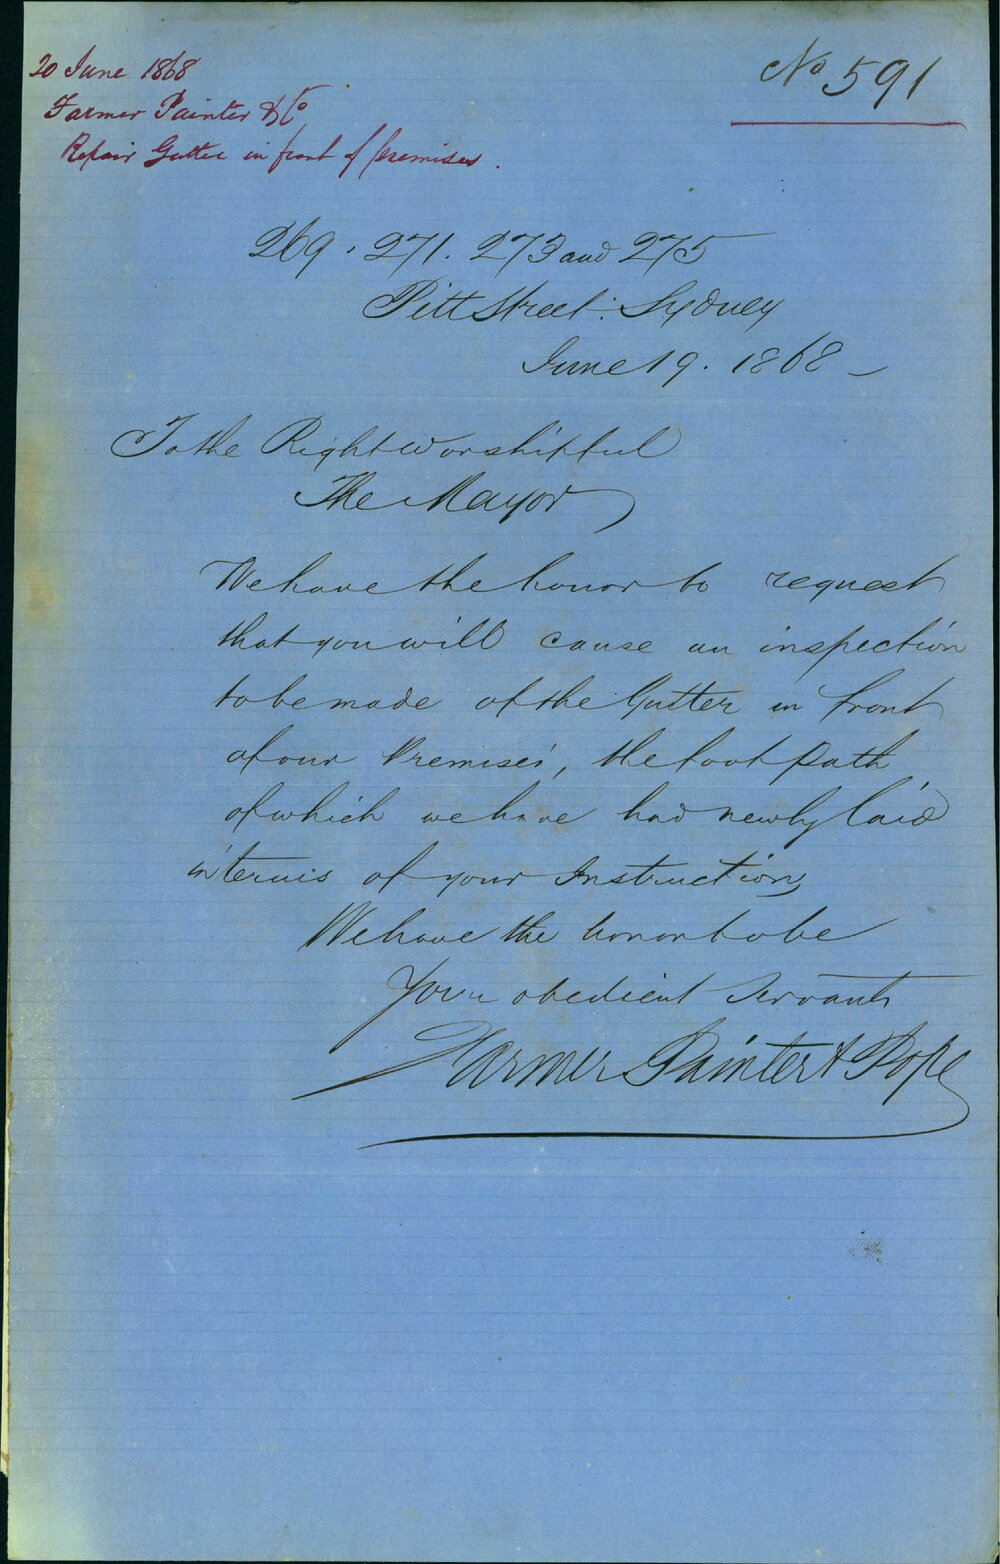 20 June 1868
Farmer Painter & Co
Repair Gutter in front of premises.
No 591
269. 271. 273 and 275
Pitt Street: Sydney
June 19. 1868 –
To the Right Worshipful
The Mayor
We have the honor to request
that you will cause an inspection
to be made of the Gutter in front
of our Premises, the foot path
of which we have had newly laid
in terms of your Instruction,
We have the honor to be
Your obedient Servants
Farmer Painter & Pope